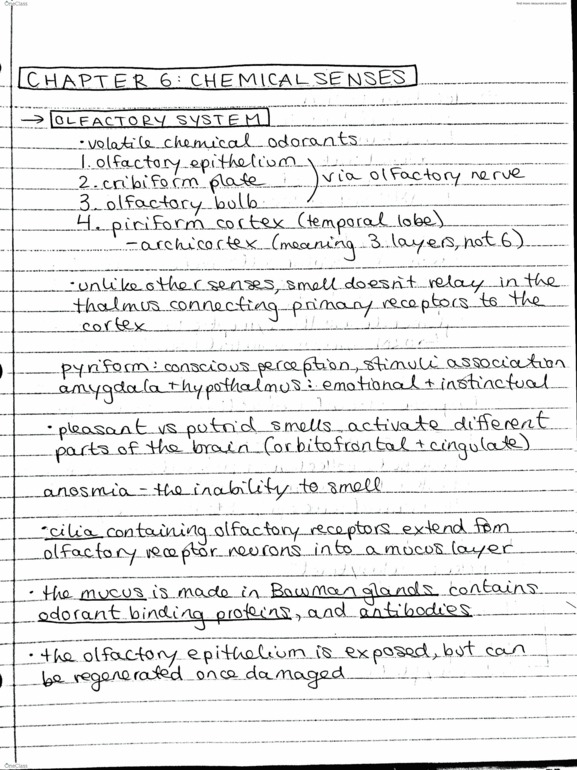 OneClass
find more resources at oneclass.com
CHAPTER 6: CHEMICAL SENSES
→ OLFACTORY SYSTEM
• volatile chemical odorants
1. olfactory epithelium
2. cribiform plate ) via olfactory nerve
3. olfactory bulb
4. piriform cortex (temporal lobe)
- archicortex (meaning 3 layers, not 6)
• unlike other senses, smell doesn't relay in the
thalmus connecting primary receptors to the
cortex
pyriform: conscious perception, stimuli association
amygdala + hypothalmus: emotional + instinctual
• pleasant vs putrid smells activate different
parts of the brain (orbitofrontal + cingulate)
anosmia - the inability to smell
• cilia containing olfactory receptors extend from
olfactory receptor neurons into a mucus layer
• the mucus is made in Bowman glands contains
odorant binding proteins, and antibodies
• the olfactory epithelium is exposed, but can
be regenerated once damaged
OneClass